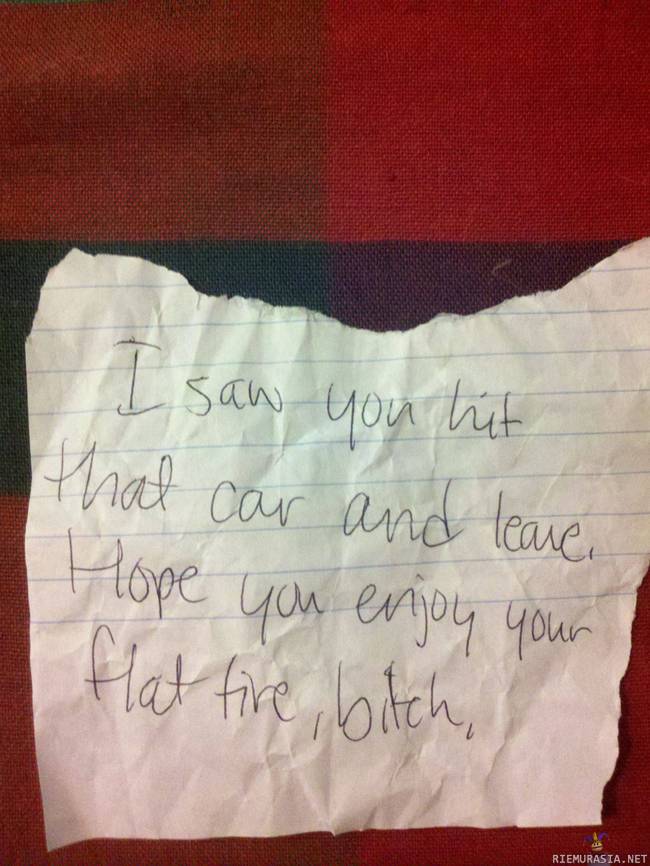 I saw you hit
that car and leave.
Hope you enjoy your
flat tire, bitch.
RIEMURASIA.NET